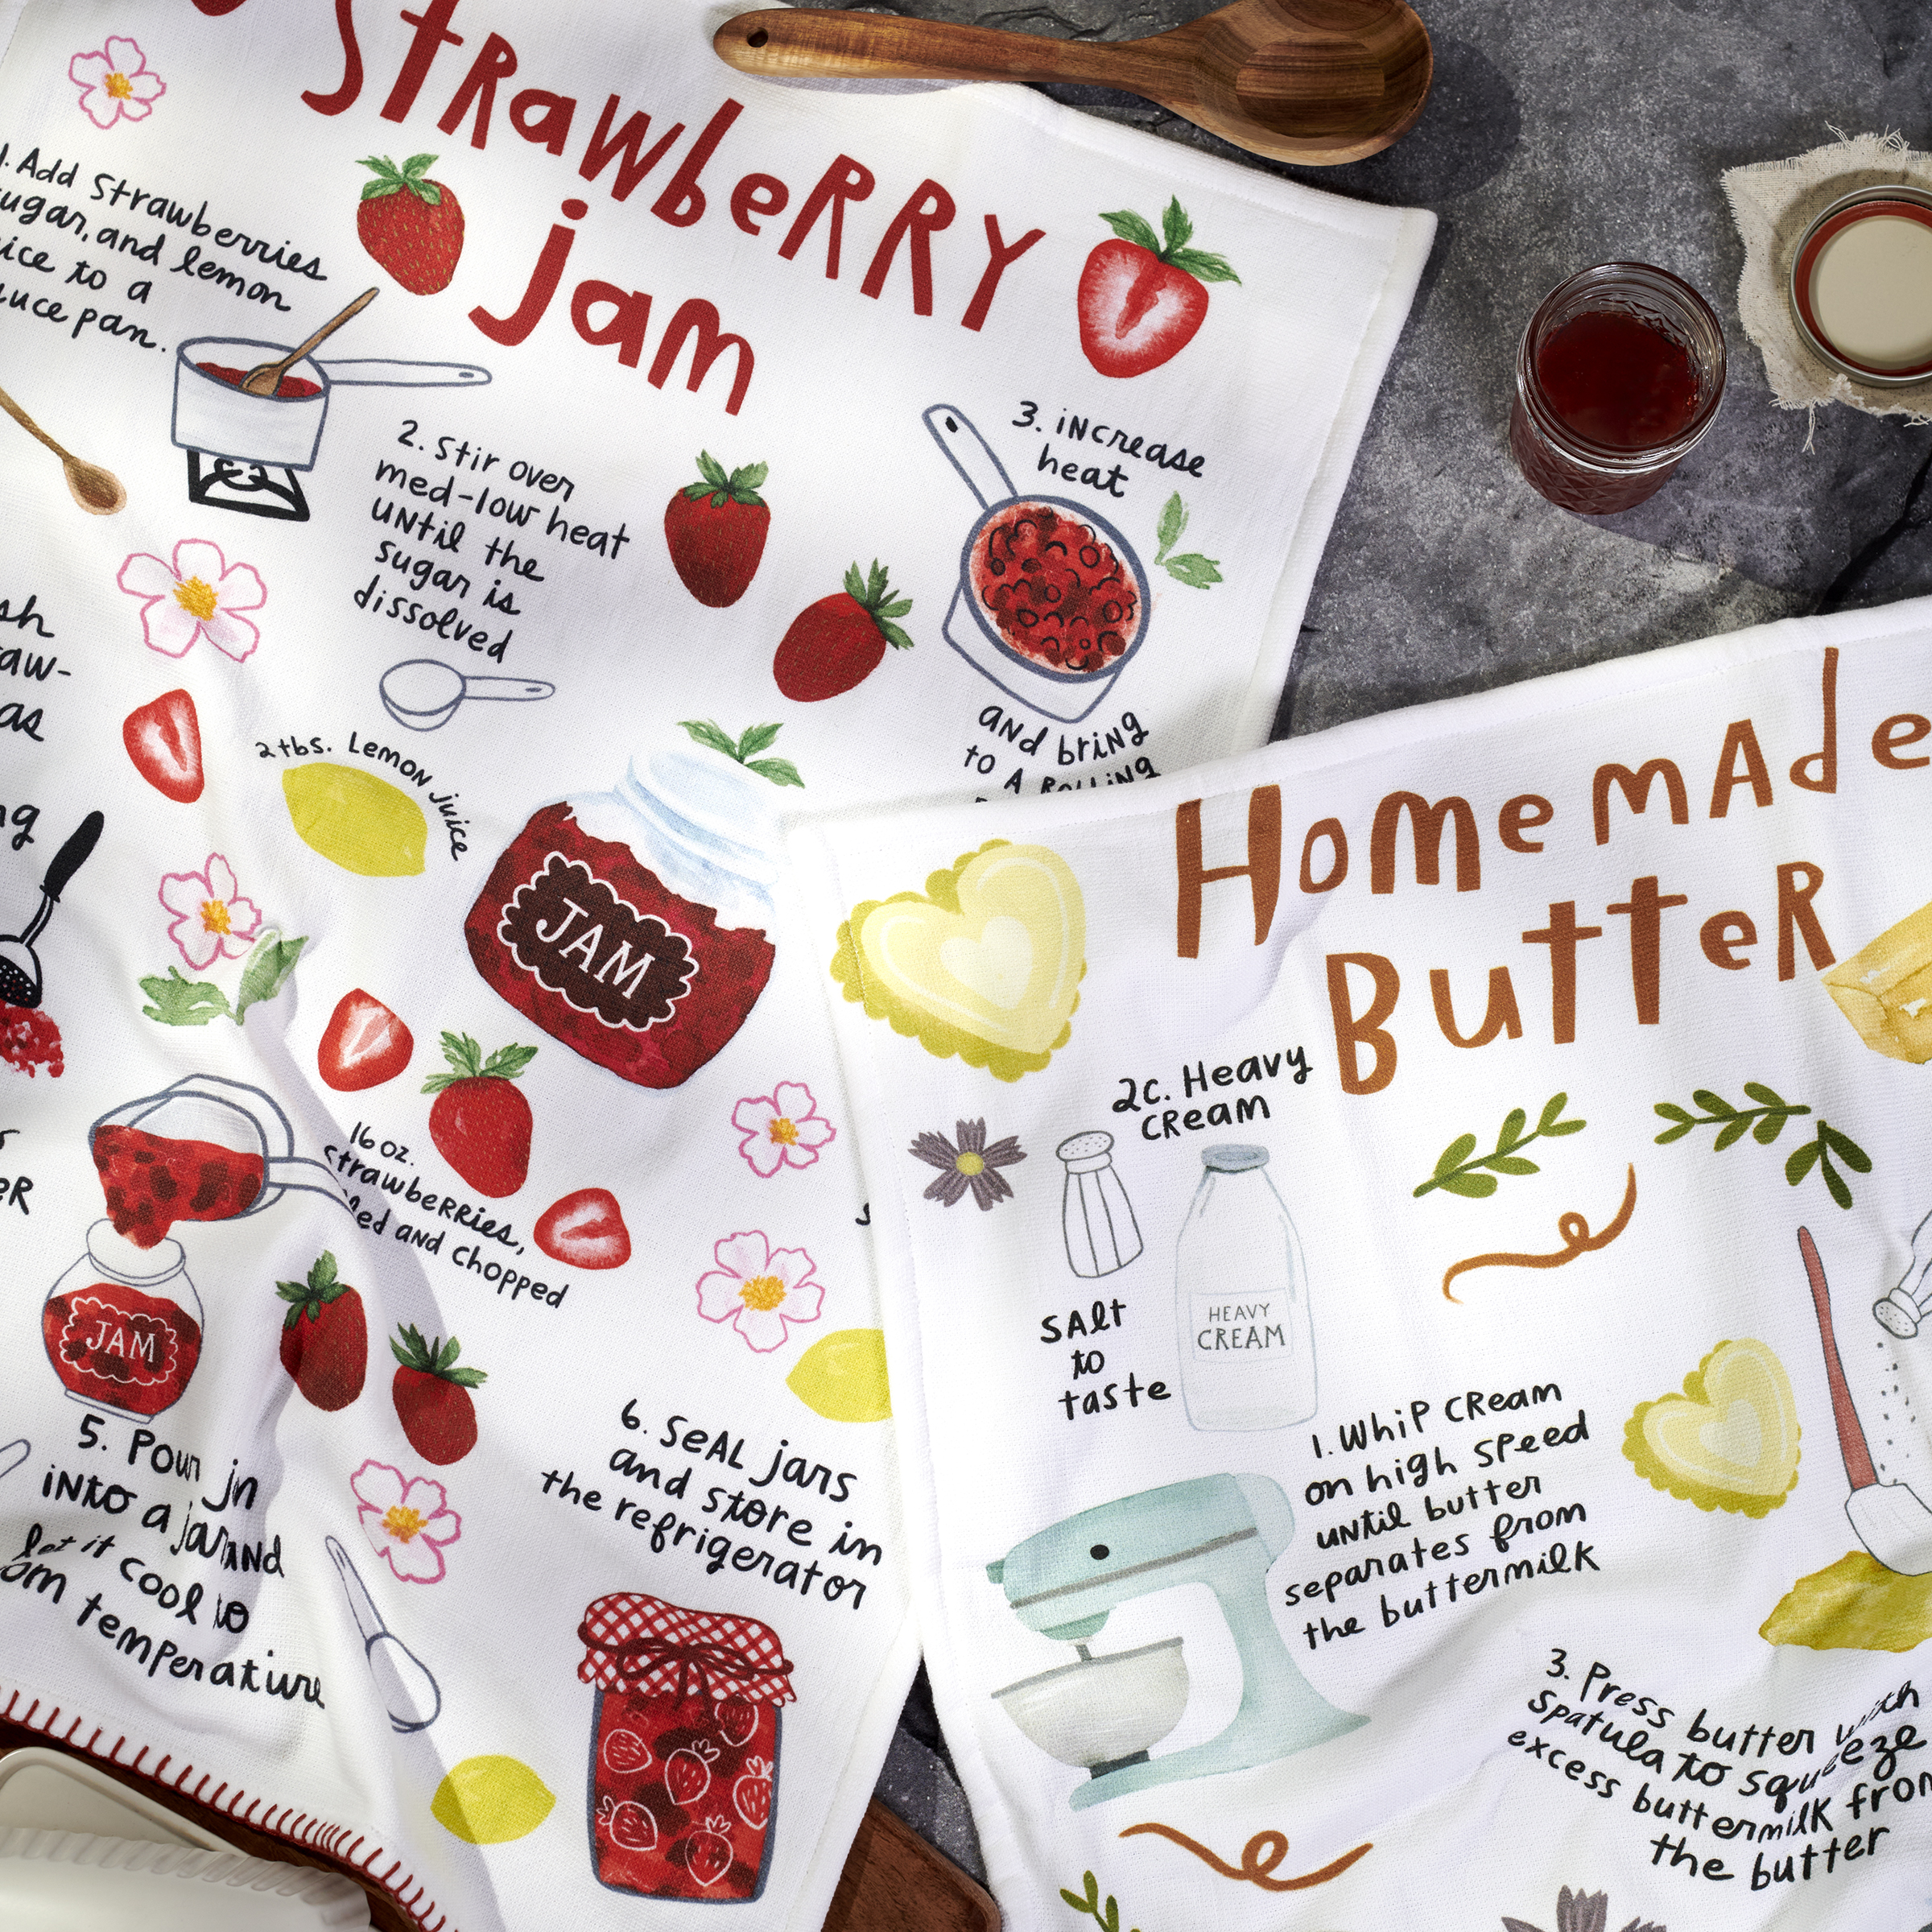 Strawberry
jam
1. Add Strawberries
sugar, and lemon
to a
pan.
2. Stir over
med-low heat
until the
sugar is
dissolved
3. increase
heat
and bring
to A Rolling
2 tbs. Lemon juice
JAM
16 oz.
strawberries,
and chopped
JAM
5. Pour
into a jar and
let it cool to
temperature
6. Seal jars
and store in
the refrigerator
Homemade
Butter
2c. Heavy
Cream
Salt
to
taste
HEAVY
CREAM
1. Whip Cream
on high speed
until butter
separates from
the buttermilk
3. Press butter with
spatula to squeeze
excess buttermilk from
the butter